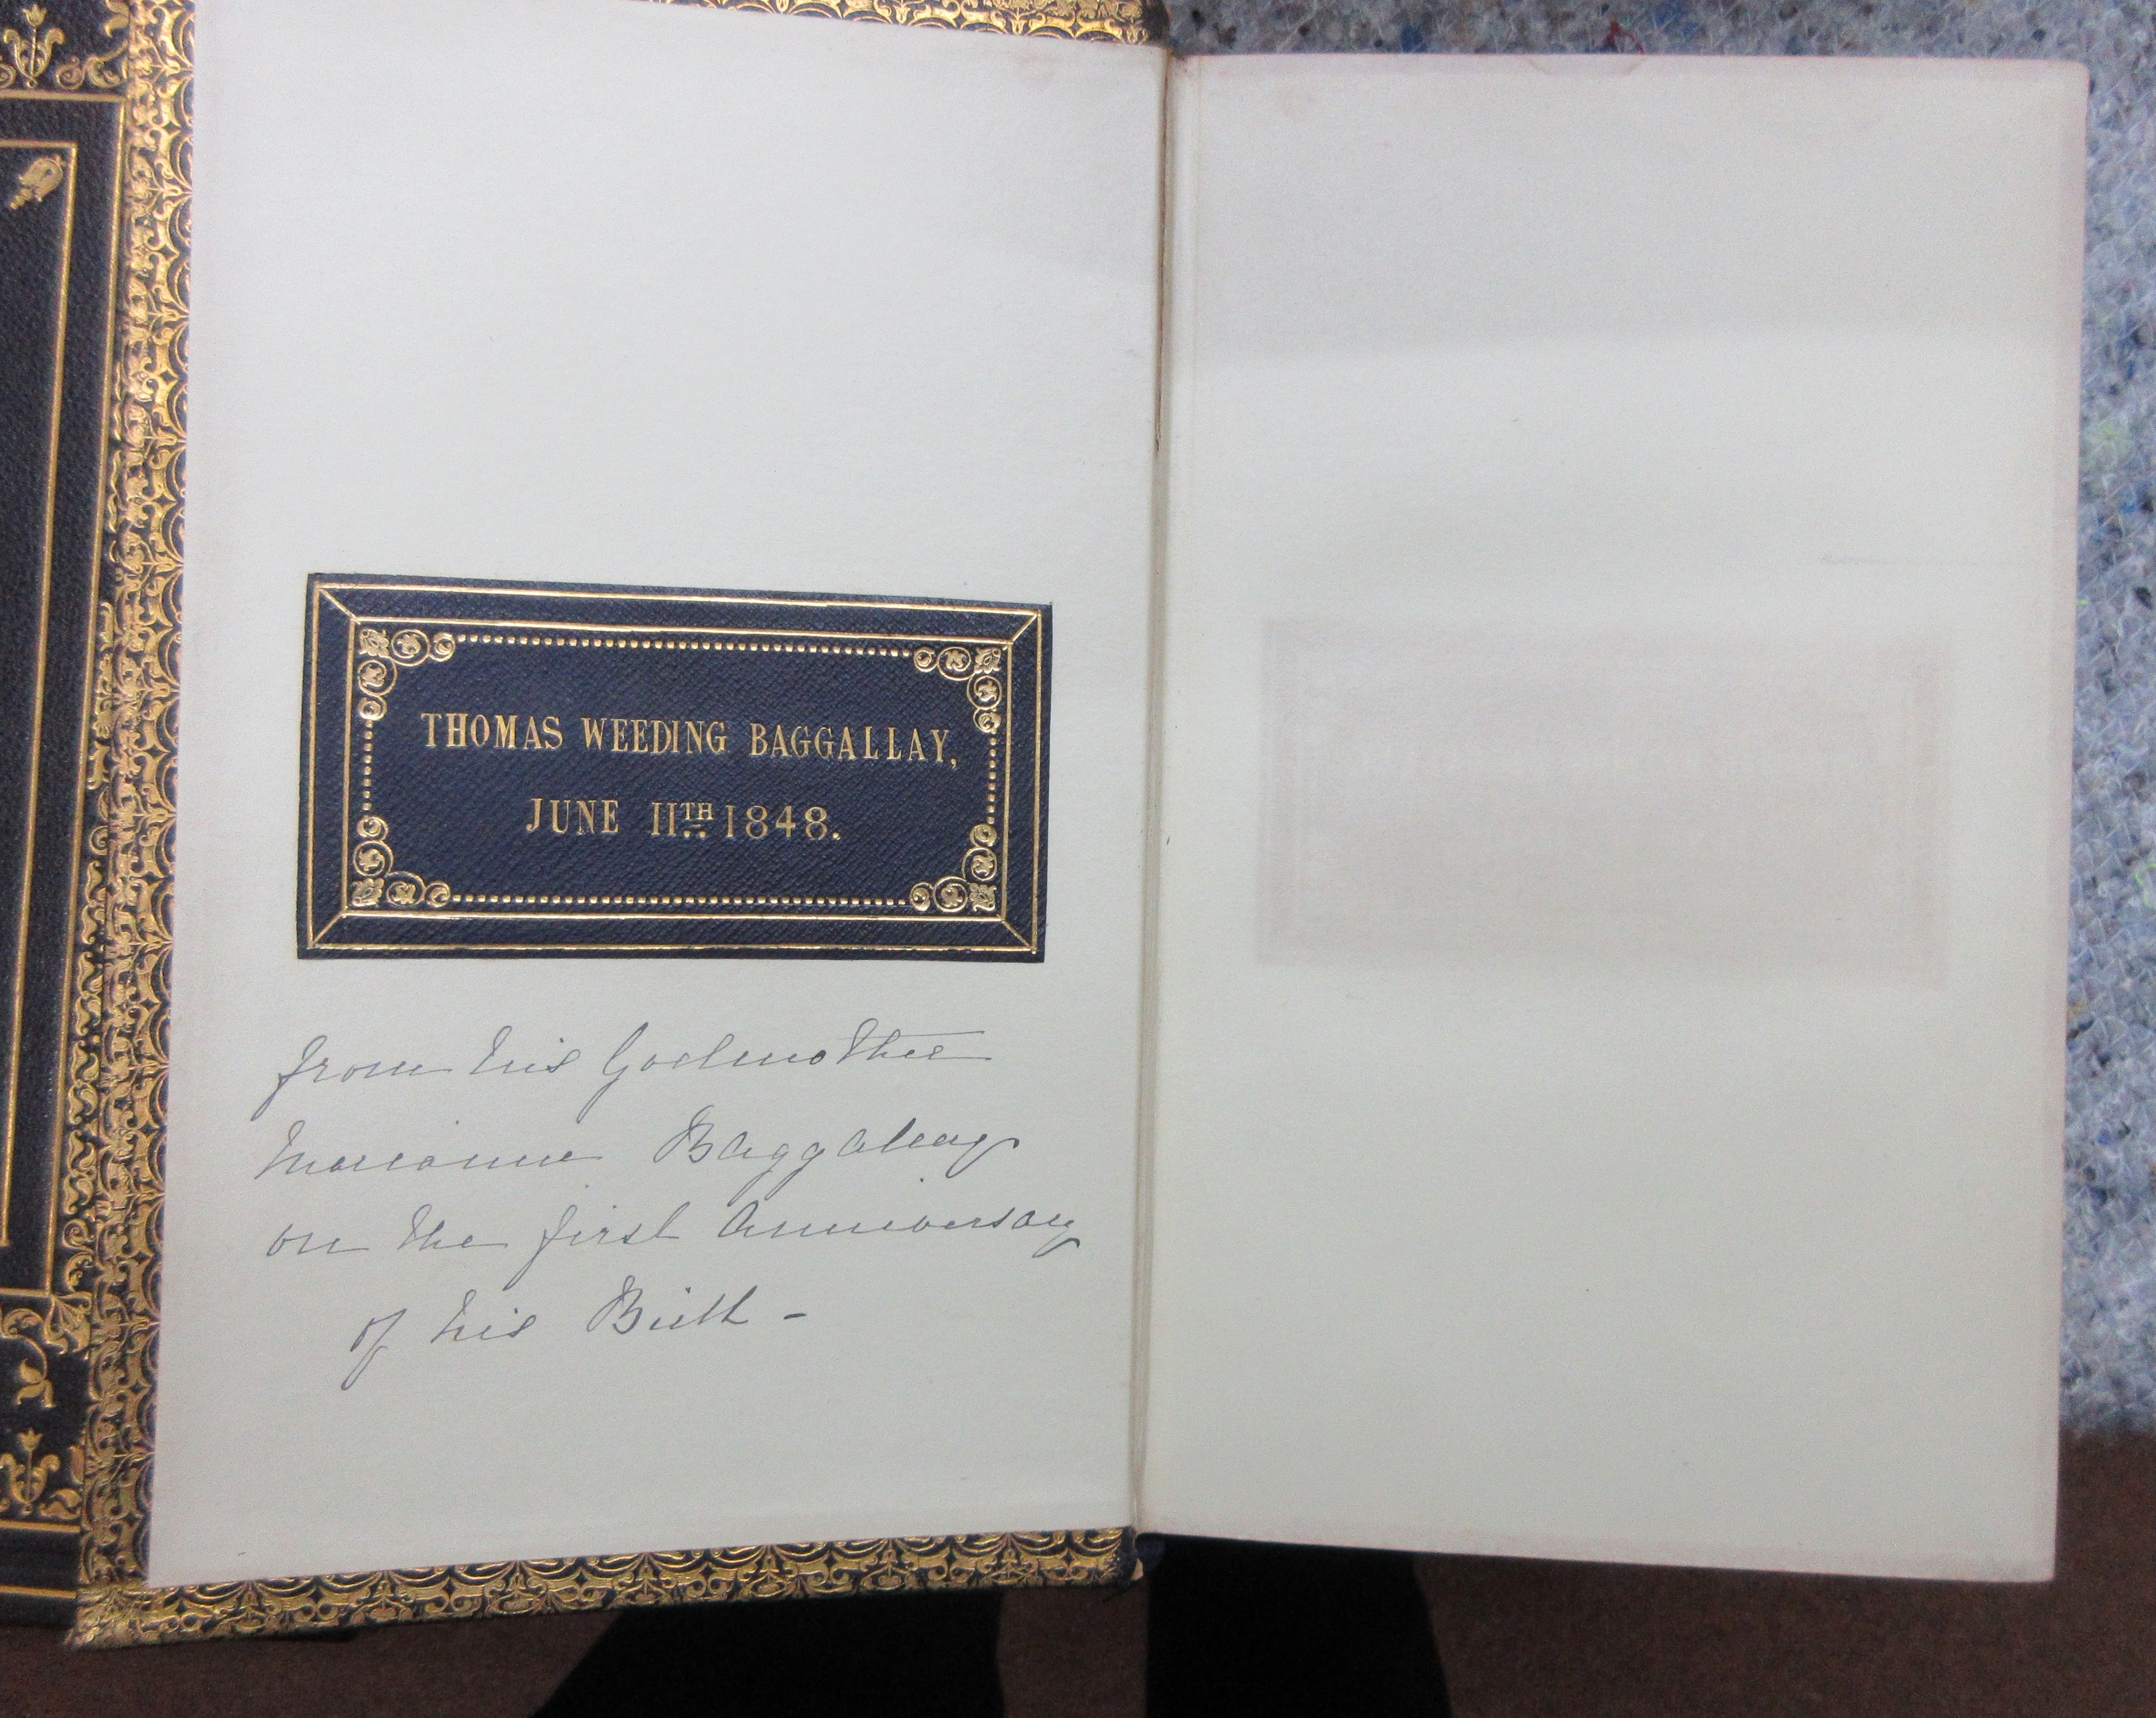 THOMAS WEEDING BAGGALLAY,
JUNE 11TH 1848.
from his Godmother
Marianne Baggallay
on the first Anniversary
of his Birth -